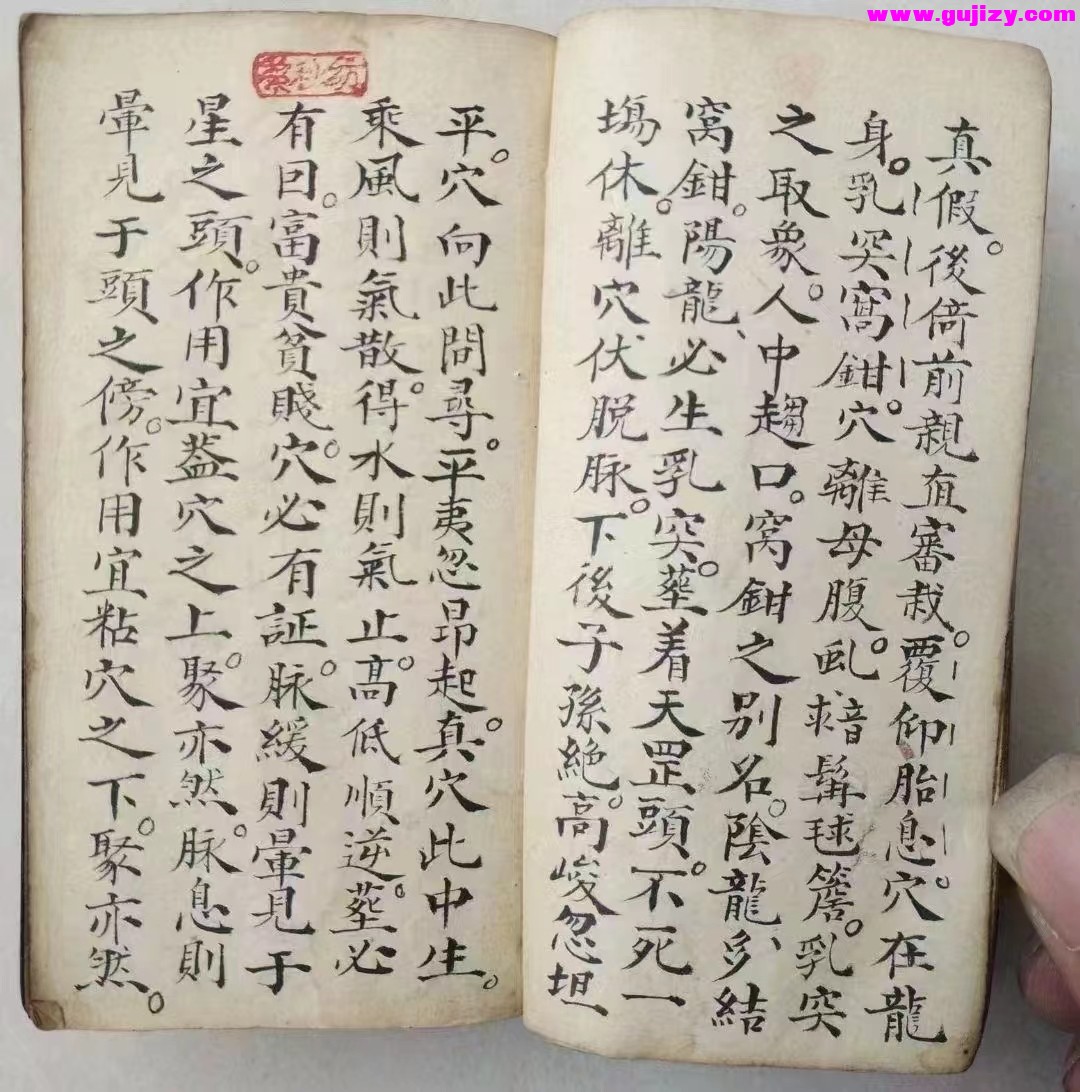 www.gujizy.com
真假。後倚前親宜審裁。覆仰胎息穴。在龍
身。乳突窩鉗穴。離母腹。乱球鬅毬簷。乳突
之取象。人中趨口。窝鉗之別名。陰龍多結
窩鉗。陽龍、必生乳突。塟着天罡頭。不死一
塲休。離穴伏脱脉。下後子孫絶。高峻忽坦
平。穴向此間尋。平夷忽昂起。真穴此中生。
乘風則氣散。得水則氣止。高低順逆。塟必
有回。富貴貧賤。穴必有証。脉緩則暈見于
星之頭。作用宜葢穴之上。聚亦然。脉息則
暈見于頭之傍。作用宜粘穴之下。聚亦然。